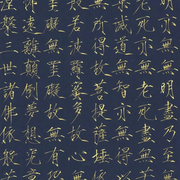 明亦無明盡乃至
死亦無老死盡無
滅道無智亦無得
所得故菩提薩埵
若波羅蜜多故心
礙無罣礙故無有
遠離顛倒夢想究
槃三世諸佛依般